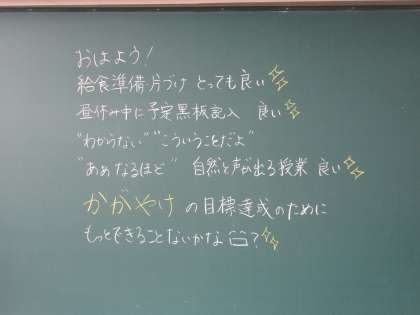 おはよう!
給食準備片づけ とっても良い
昼休み中に予定黒板記入 良い
"わからない" "こういうことだよ"
"あぁなるほど" 自然と声が出る授業 良い
かがやけ の目標達成のために
もっとできることないかな?